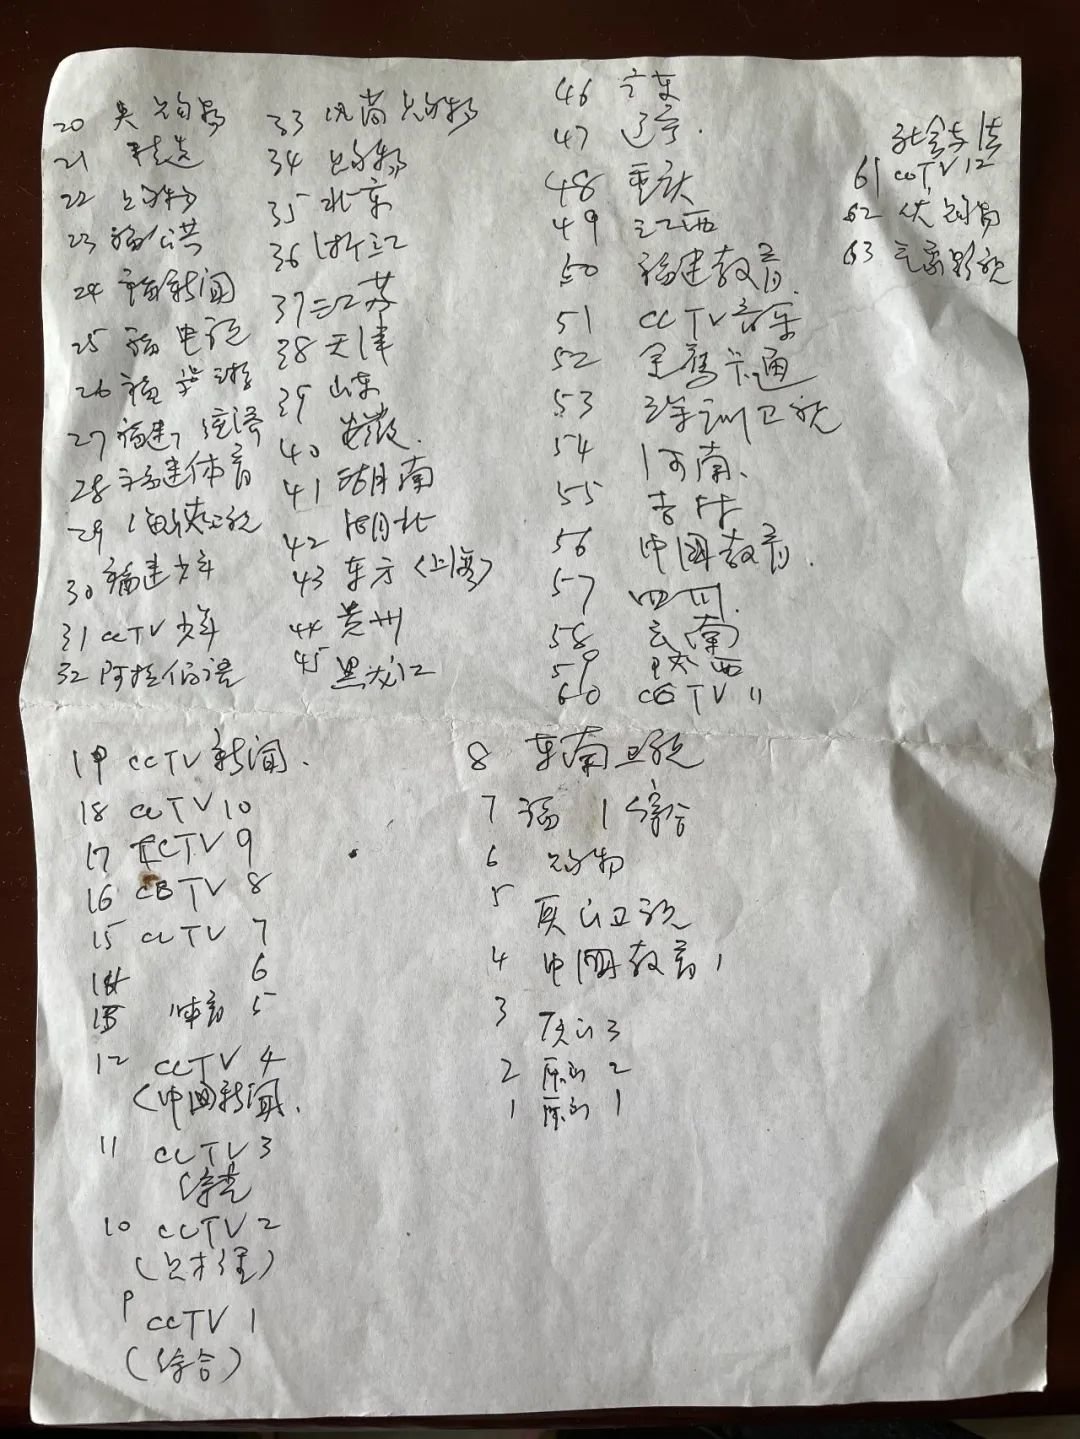 20 美购物
21 精选
22 购物
23 福公共
24 福新闻
25 福电视
26 福 旅游
27 福建 经济
28 福建体育
29 海峡卫视
30 福建少年
31 CCTV 少年
32 阿拉伯语
33 风尚购物
34 购物
35 北京
36 浙江
37 江苏
38 天津
39 山东
40 安徽.
41 湖南
42 湖北
43 东方(上海)
44 贵州
45 黑龙江
46 广东
47 辽宁.
48 重庆
49 江西
50 福建教育.
51 CCTV音乐
52 金鹰卡通
53 深圳卫视
54 河南.
55 吉林
56 中国教育.
57 四川.
58 云南
59 陕西
60 CCTV 11
社会与法
61 CCTV 12
62 优购物
63 家影视
19 CCTV 新闻.
18 CCTV 10
17 CCTV 9
16 CCTV 8
15 CCTV 7
14 6
13 体育 5
12 CCTV 4
(中国新闻.
11 CCTV 3
综艺
10 CCTV 2
(财经)
9 CCTV 1
(综合)
8 东南卫视
7 福 1 综合
6 购物
5 厦门卫视
4 中国教育1
3 厦门3
2 厦门 2
1 厦门 1